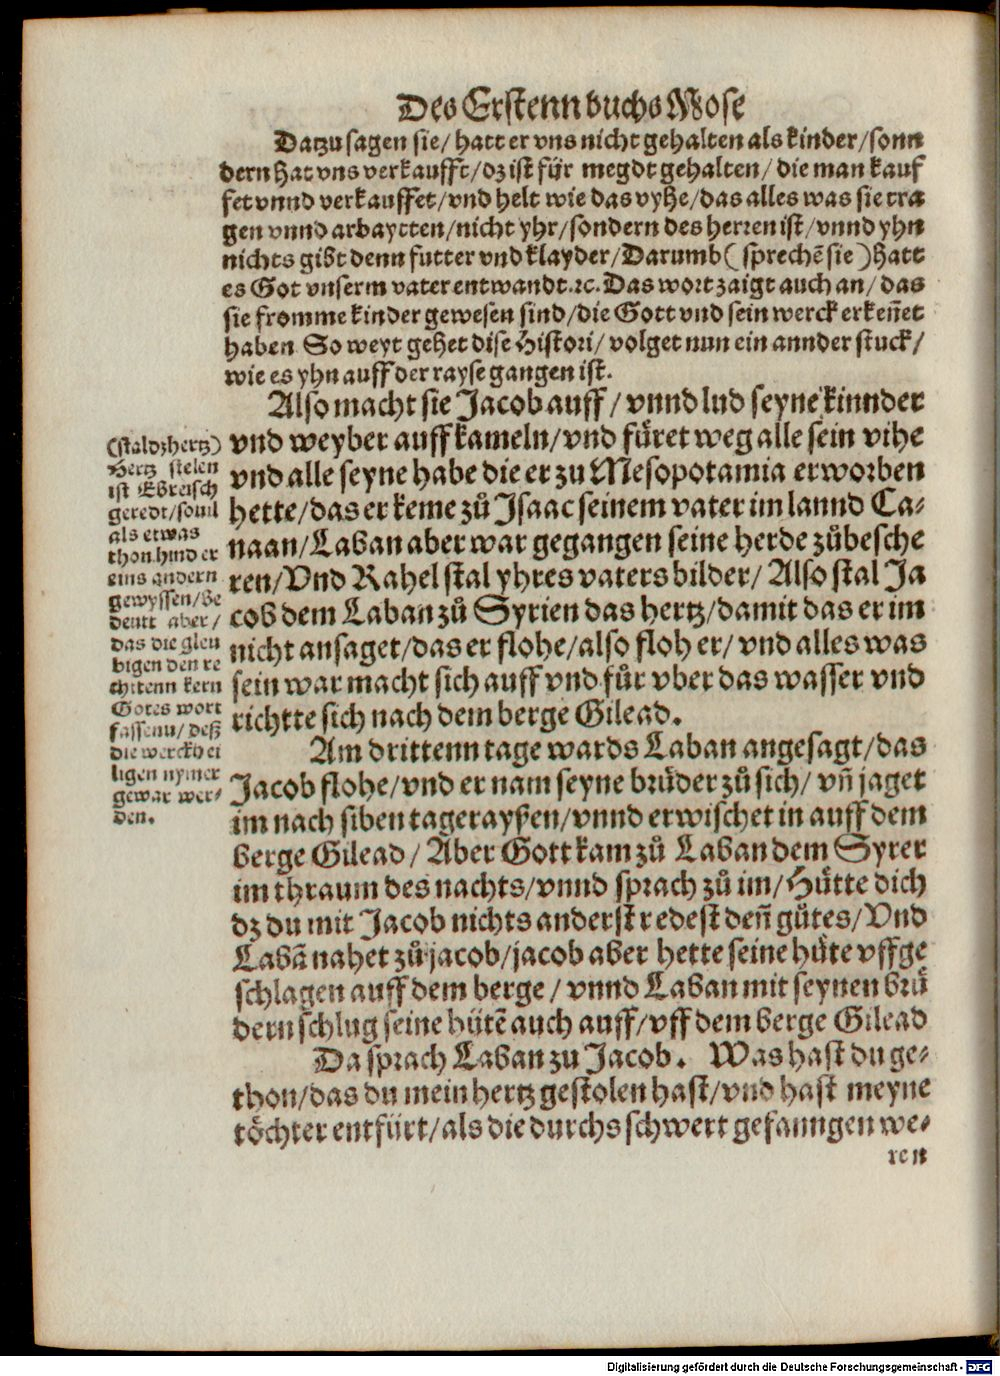 Des Erstenn buchs Mose
Datzu sagen sie/ hatt er vns nicht gehalten als kinder/sonn
dern hat vns verkaufft/dz ist für megdt gehalten/ die man kauf
fet vnnd verkauffet/vnd helt wie das vyhe/das alles was sie tra
gen vnnd arbaytten/nicht yhr/sondern des herren ist/vnnd yhn
nichts gibt denn futter vnd klayder/Darumb( sprechē sie )hatt
es Got vnserm vater entwandt.ꝛc.Das wort zaigt auch an/ das
sie fromme kinder gewesen sind/die Gott vnd sein werck erkeñet
haben So weyt gehet dise Histori/ volget nun ein annder stuck/
wie es yhn auff der rayse gangen ist.
Also macht sie Jacob auff / vnnd lud seyne kinnder
vnd weyber auff kameln/vnd füret weg alle sein vihe
vnd alle seyne habe die er zu Mesopotamia erworben
hette/das er keme zů Isaac seinem vater im lannd Ca-
naan/Laban aber war gegangen seine herde zůbesche
ren/Vnd Rahel stal yhres vaters bilder/ Also stal Ja
cob dem Laban zů Syrien das hertz/damit das er im
nicht ansaget/das er flohe/also floh er/ vnd alles was
sein war macht sich auff vnd fůr vber das wasser vnd
richtte sich nach dem berge Gilead.
(staldzhertz)
Hertz stelen
ist Ebreisch
geredt/souil
als etwas
thon hinder
eins andern
gewyssen/be
deutt aber/
das die gleu
bigen den re
chttenn kern
Gotes wort
fassenn/ deß
die werckhei
ligen nymer
gewar wer-
den.
Am drittenn tage wards Laban angesagt/das
Jacob flohe/vnd er nam seyne brüder zů sich/ vñ jaget
im nach siben tagerayßen/vnnd erwischet in auff dem
berge Gilead/ Aber Gott kam zů Laban dem Syrer
im thraum des nachts/vnnd sprach zů im/Hütte dich
dz du mit Jacob nichts anderst redest deñ gůtes/Vnd
Labā nahet zů jacob/jacob aber hette seine hüte vffge
schlagen auff dem berge/ vnnd Laban mit seynen brü
dern schlug seine hütē auch auff/vff dem berge Gilead
Da sprach Laban zu Jacob. Was hast du ge-
thon/das du mein hertz gestolen hast/vnd hast meyne
töchter entfürt/als die durchs schwert gefanngen we-
ren
Digitalisierung gefördert durch die Deutsche Forschungsgemeinschaft - DFG